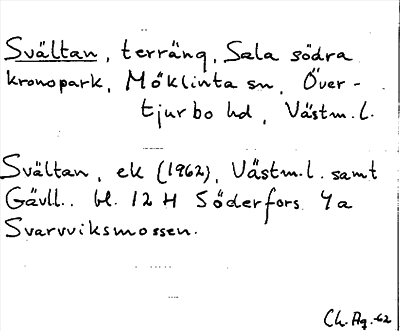 Svältan, terräng, Sala södra
kronopark, Möklinta sn, Över-
tjurbo hd, Västm.l.
Svältan, ek (1962), Västm.l. samt
Gävll. bl. 12 H Söderfors 4a
Svarvviksmossen.
Ch. Ag. -62